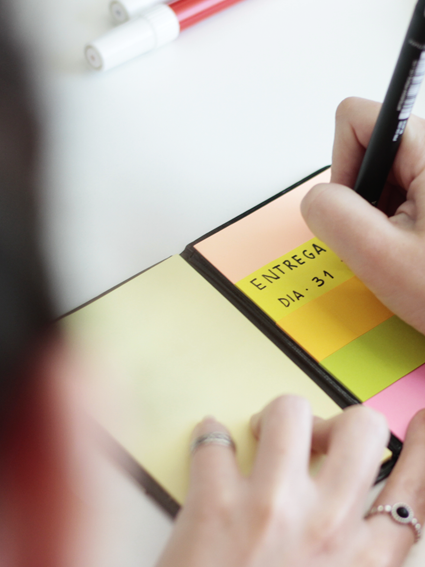 ENTREGA
DIA. 31